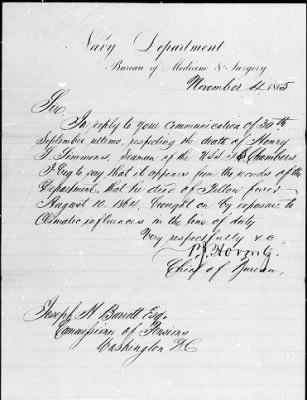 Navy Department
Bureau of Medicine & Surgery
November 4, 1865
Sir,
In reply to your communication of 30th
September ultimo, respecting the death of Henry
T. Simmons, Seaman of the U.S.S. Chambers
I beg to say that it appears from the records of the
Department, that he died of Yellow fever
August 10. 1864, brought on by exposure to
Climatic influences in the line of duty
Very respectfully &c.
P. J. Horwitz
Chief of Bureau.
Joseph H Barrett Esq.
Commissioner of Pensions
Washington D.C